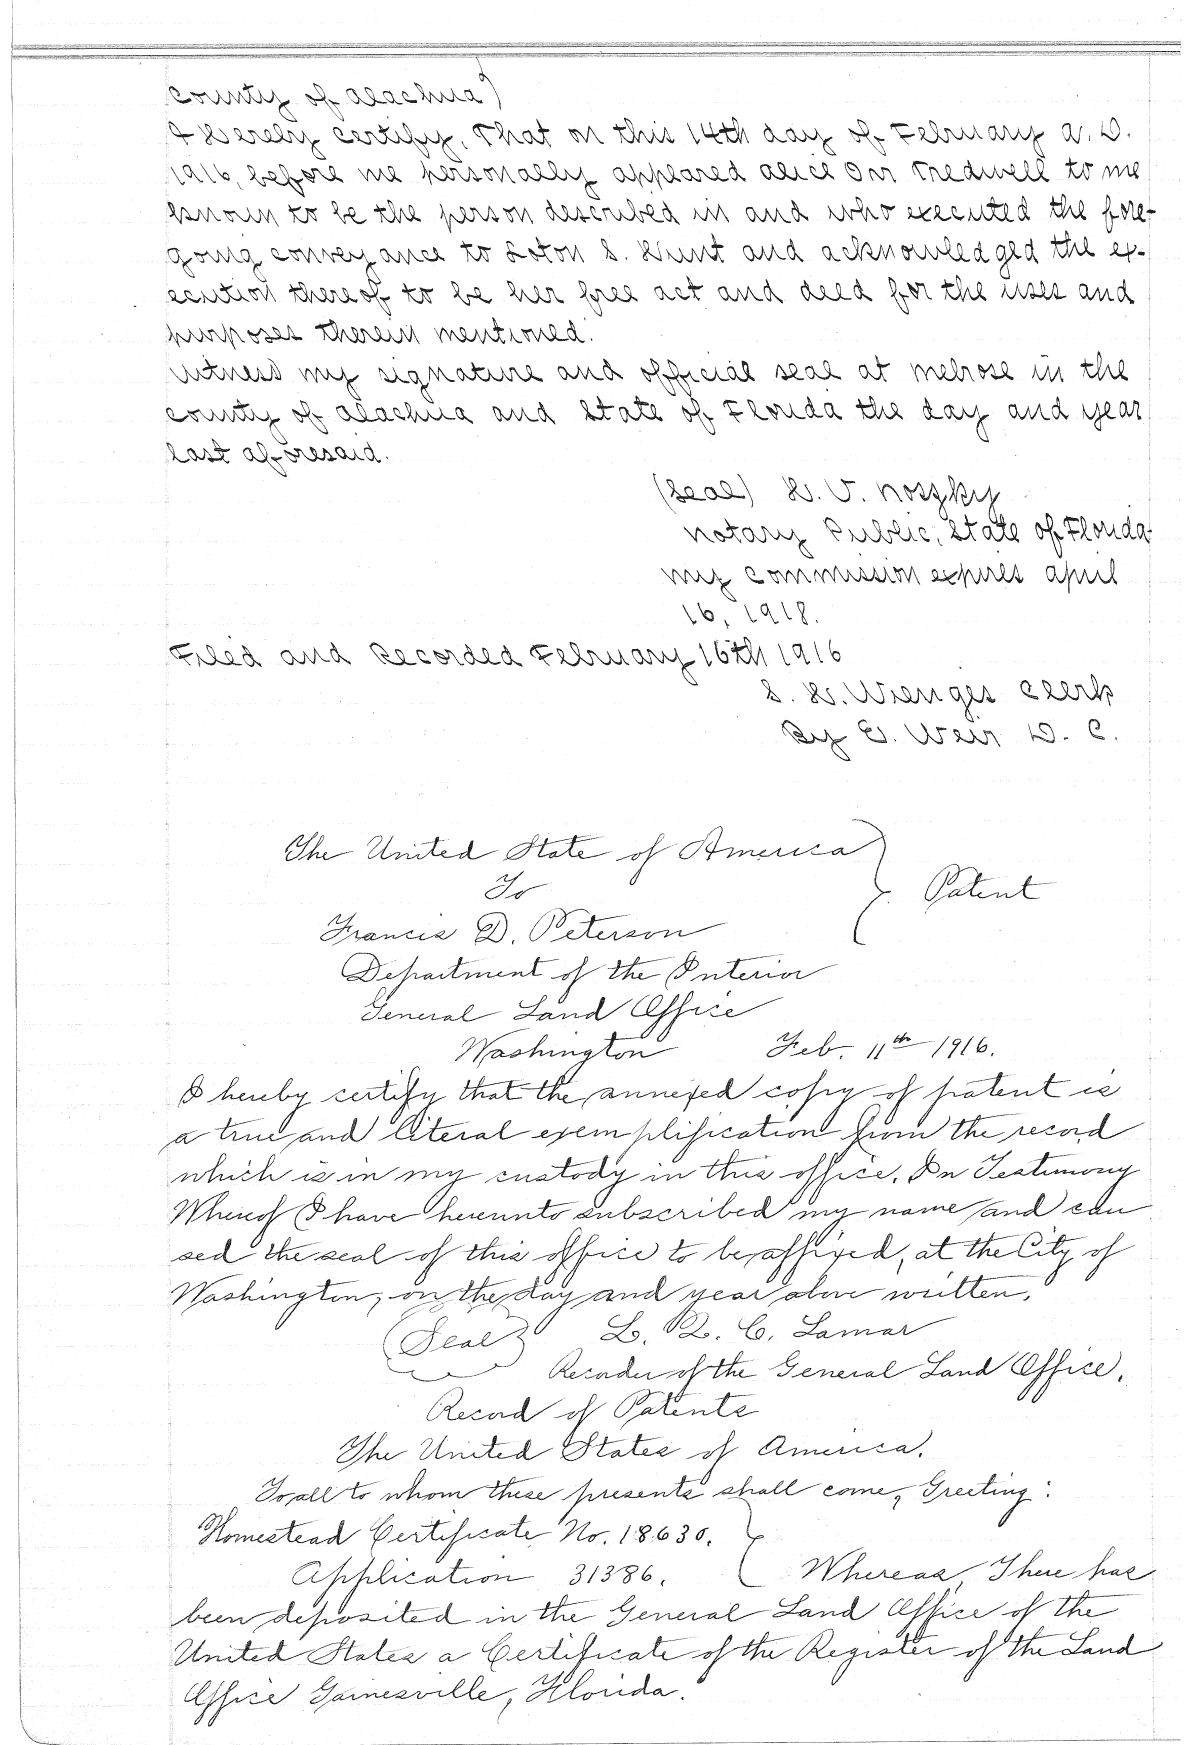 County of Alachua)
I Hereby Certify, That on this 14th day of February A. D.
1916, before me personally appeared Alice Orr Tredwell to me
known to be the person described in and who executed the fore-
going conveyance to Loton S. Hunt and acknowledged the ex-
ecution thereof to be her free act and deed for the uses and
purposes therein mentioned.
Witness my signature and official seal at Melrose in the
County of Alachua and State of Florida the day and year
last aforesaid.
(Seal) H. V. Noszky
Notary Public, State of Florida
My commission expires April
16, 1918.
Filed and Recorded February 16th 1916
S. H. Wienges Clerk
By E. Weir D. C.
The United State of America
To } Patent
Francis D. Peterson
Department of the Interior
General Land Office
Washington Feb. 11th 1916.
I hereby certify that the annexed copy of patent is
a true and literal exemplification from the record
which is in my custody in this office. In Testimony
Whereof I have hereunto subscribed my name and cau
sed the seal of this office to be affixed, at the City of
Washington, on the day and year above written.
(Seal) L. Q. C. Lamar
Recorder of the General Land Office.
Record of Patents
The United States of America.
To all to whom these presents shall come, Greeting:
Homestead Certificate No. 18630. }
Application 31386. Whereas, There has
been deposited in the General Land Office of the
United States a Certificate of the Register of the Land
Office Gainesville, Florida.